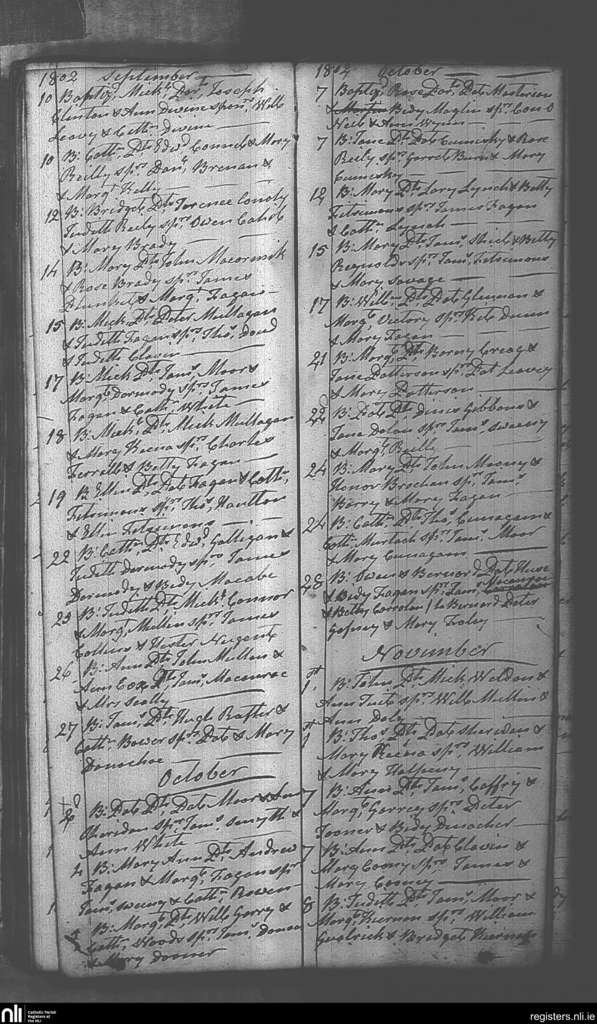 1802 September
10 Baptiz'd Mich'l Da'r Joseph
Clinton & Ann Devine spon'rs Will'm
Leavy & Cath'n Devine
10 B: Cath'n Dt Edw'd Connell & Mary
Reilly sp'rs Dan'l Brenan &
& Marg't Kelly
12 B: Bridget Dt Terence Conoly
Judeth Reily sp'rs Owen Cahill
& Mary Brady
14 B: Mary Dt John Macormik
& Rose Brady sp'rs James
Plunket & Marg't Fagan
15 B: Mick Dt Peter Mullagan
& Judeth Fagan sp'rs Tho's Dowd
& Judeth Claver
17 B: Mick Dt Jam's Moor &
Marg't Dormody sp'rs James
Fagan & Cath'n White
18 B: Mich'l Dt Mick Mullagan
& Mary Keena sp'rs Charles
Ferrell & Betty Fagan
19 B: Ellin Dt Pat Fagan & Cath'n
Fitsimons sp'rs Tho's Hautton
& Ellin Fitsimons
22 B: Cath'n Dt Edw'd Galligan &
Judeth Dormody sp'rs James
Dormody & Bidy Macabe
23 B: Judeth Dt Mich'l Connor
& Marg't Mullin sp'rs James
Collins & Hester Nugent
26 B: Ann Dt John Mullen &
Ann Cox Dt Jam's Macource
& Mrs Scally
27 B: Jam's Dt Hugh Rafter &
Cath'n Bower sp'rs Pat & Mary
Donohoe
October
B: Pat Dt Pat Moor &
Sheridan sp'rs Jam's Smyth &
Ann White
4 B: Mary Ann Dt Andrew
Fagan & Marg't Fagan sp'rs
Jam's Sweeny & Cath'n Bowen
B: Marg't Dt Will Gerry &
Cath'n Woods sp'rs Jam's
& Mary Donner
1802 October
7 Baptiz'd Rose Da'r Pat Masterson
& Bidy Maglin sp'rs Con O
Neil & Ann
7 B: Jane Dt Pat Cumesky & Rose
Reily sp'rs Garret Burn & Mary
Cumesky
12 B: Mary Dt Lary Lynch & Betty
Fitsimons sp'rs James Fagan
& Cath'n Lynch
15 B: Mary Dt Jam's Shiel & Betty
Reynolds sp'rs Jam's Fitsimons
& Mary Savage
17 B: Will'm Dt Pat Glennan &
Marg't Victory sp'rs Pat Dunn
& Mary Fagan
21 B: Marg't Dt Barny Creag &
Jane Patterson sp'rs Pat Leavey
& Mary Patterson
22 B: Pat Dt Denis Gibbons &
Jane Dolan sp'rs Jam's Sweeny
& Marg't Reilly
24 B: Mary Dt John Mooney &
Honor Brochan sp'rs Jam's
Berry & Mary Fagan
24 B: Cath'n Dt Tho's Cunagam &
Cath'n Murtach sp'rs Jam's Moor
& Mary Cunagam
28 B: Owen & Bernard Pat Huse
& Bidy Fagan sp'rs Jam's
& Betty Corrolan / to Bernard Peter
Gafney & Mary Foley
November
1st B: John Dt Mick Weldon &
Ann Tuit sp'rs Will'm Mullin &
Ann Daly
1st B: Tho's Dt Pat Sheridan &
Mary Keena sp'rs William
& Mary Halpeny
B: Ann Dt Jam's Caffry &
Marg't Garrey sp'rs Peter
Fooner & Bidy Donocher
7 B: Ann Dt Pat Claver &
Mary Conry sp'rs James &
Mary Conry
8 B: Judeth Dt Jam's Moor &
Marg't Kiernan sp'rs William
Goulrick & Bridget Kiernan
nli Catholic Parish
Registers at
the NLI
registers.nli.ie